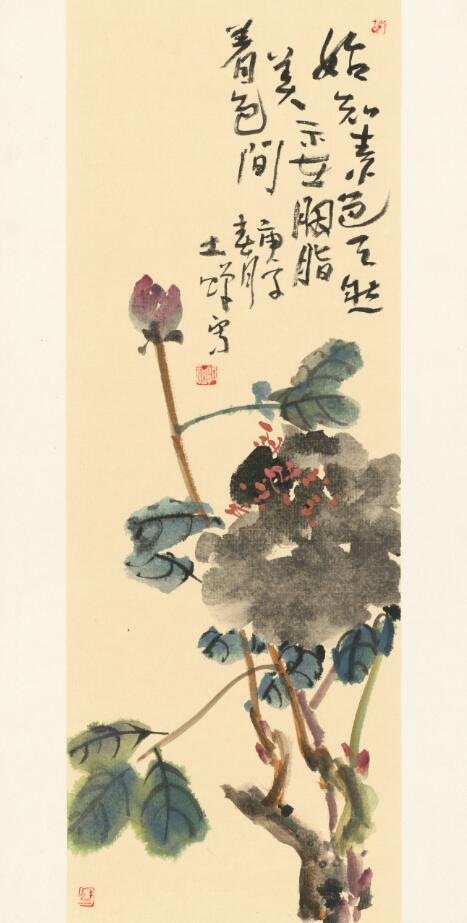 始知素色天然
美不在胭脂
着色间
庚子
春月
土𫊸写